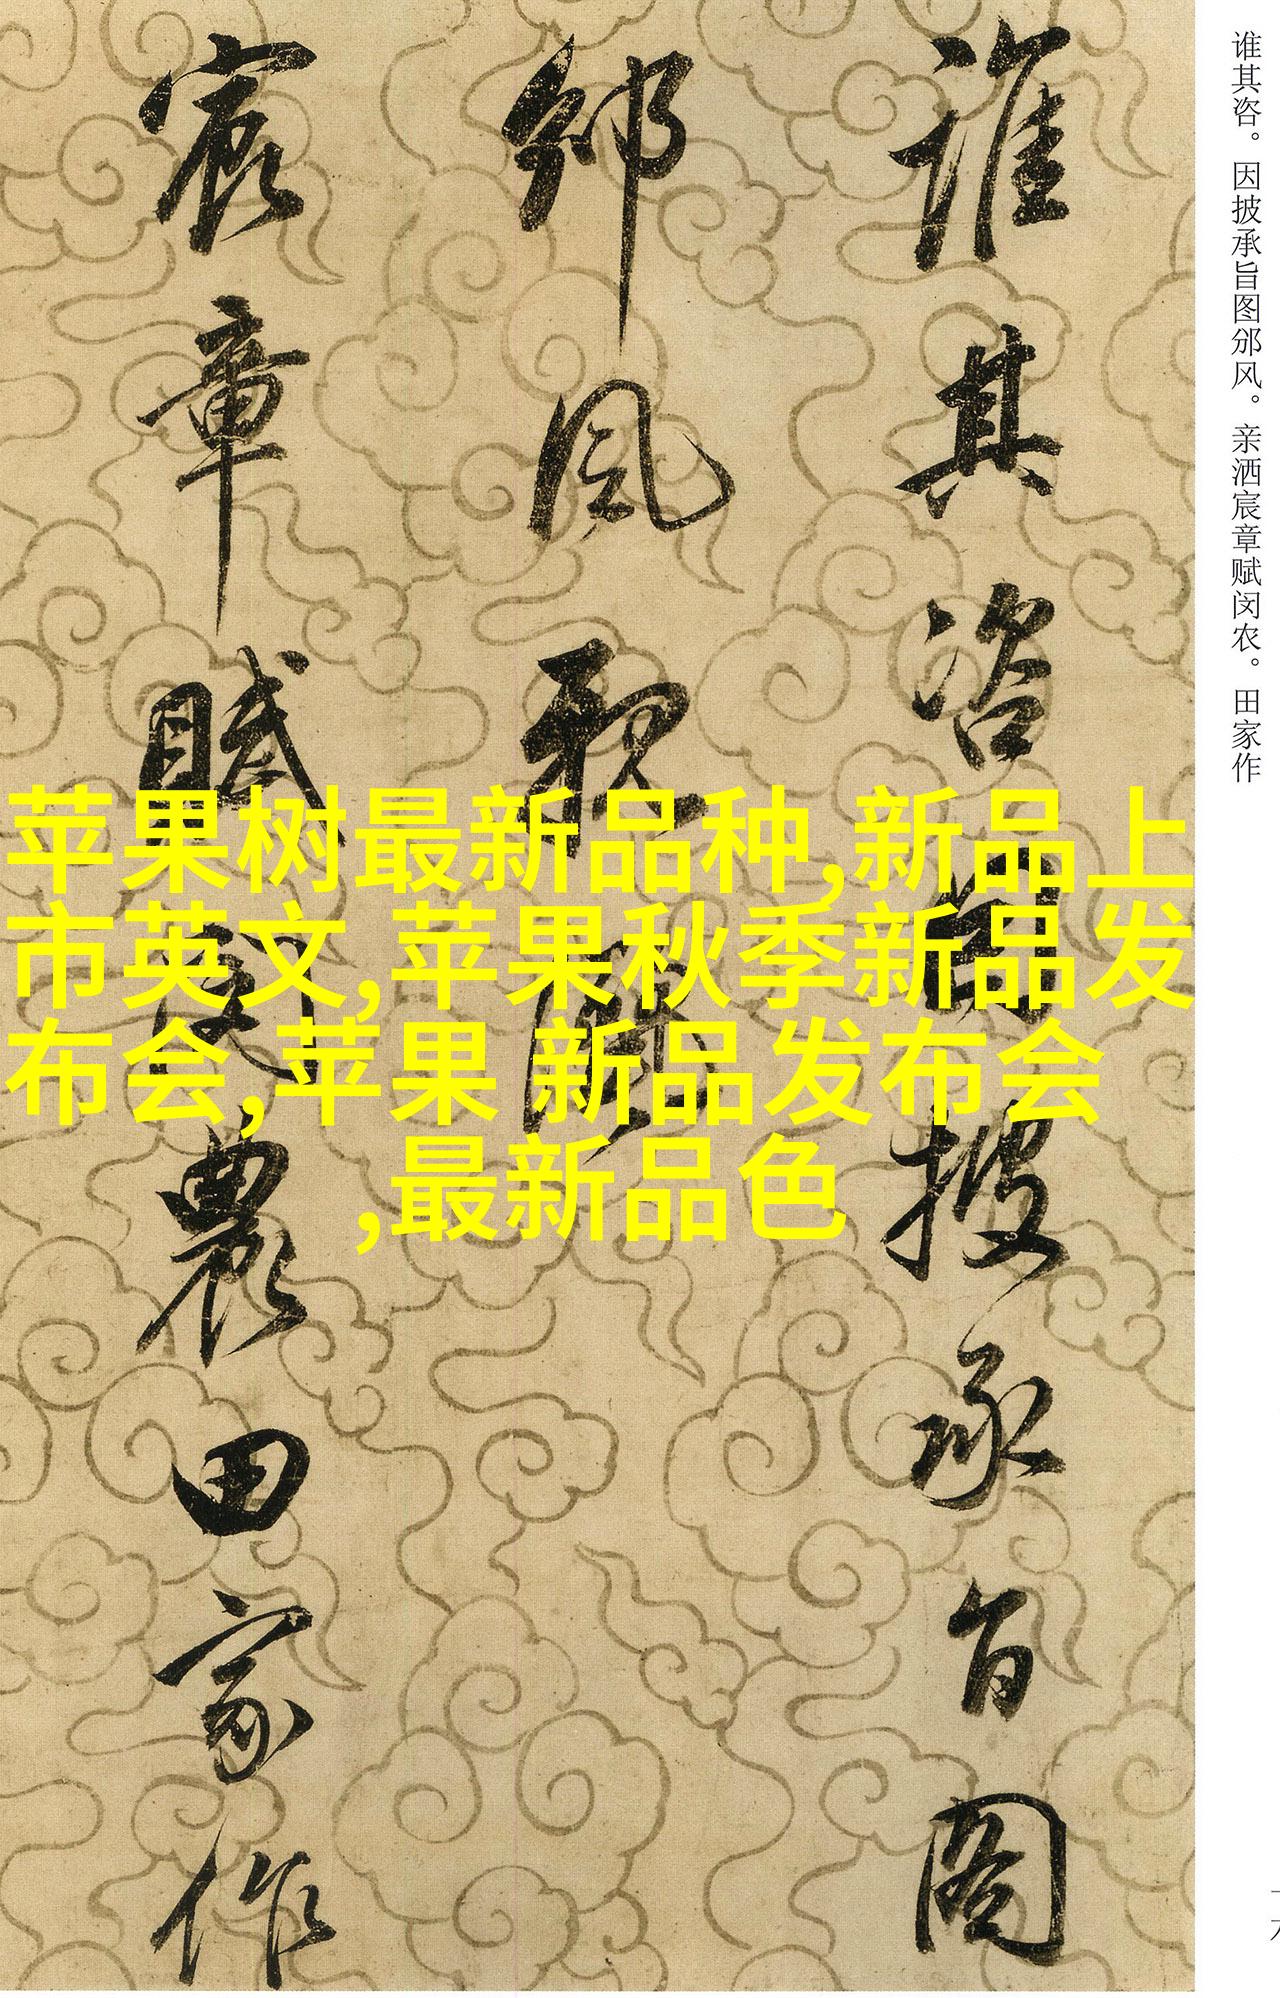 谁其咨。因披承旨图邠风。亲洒宸章赋闵农。田家作
誰其咨因披承旨圖
邠風親灑
宸章賦閔農田家作
苹果树最新品种,新品上
市英文,苹果秋季新品发
布会,苹果 新品发布会
,最新品色